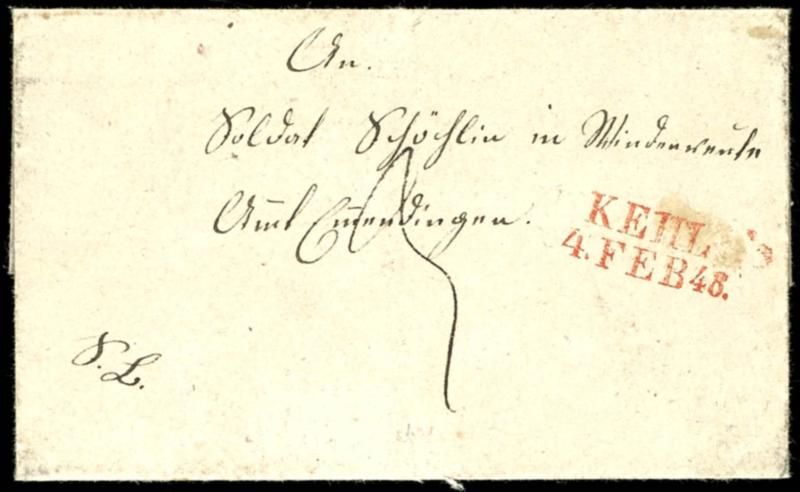 An.
Soldat Schöchlin in Windenreuthe
Amt Emendingen.
KEHL
4. FEB 48.
S. L.